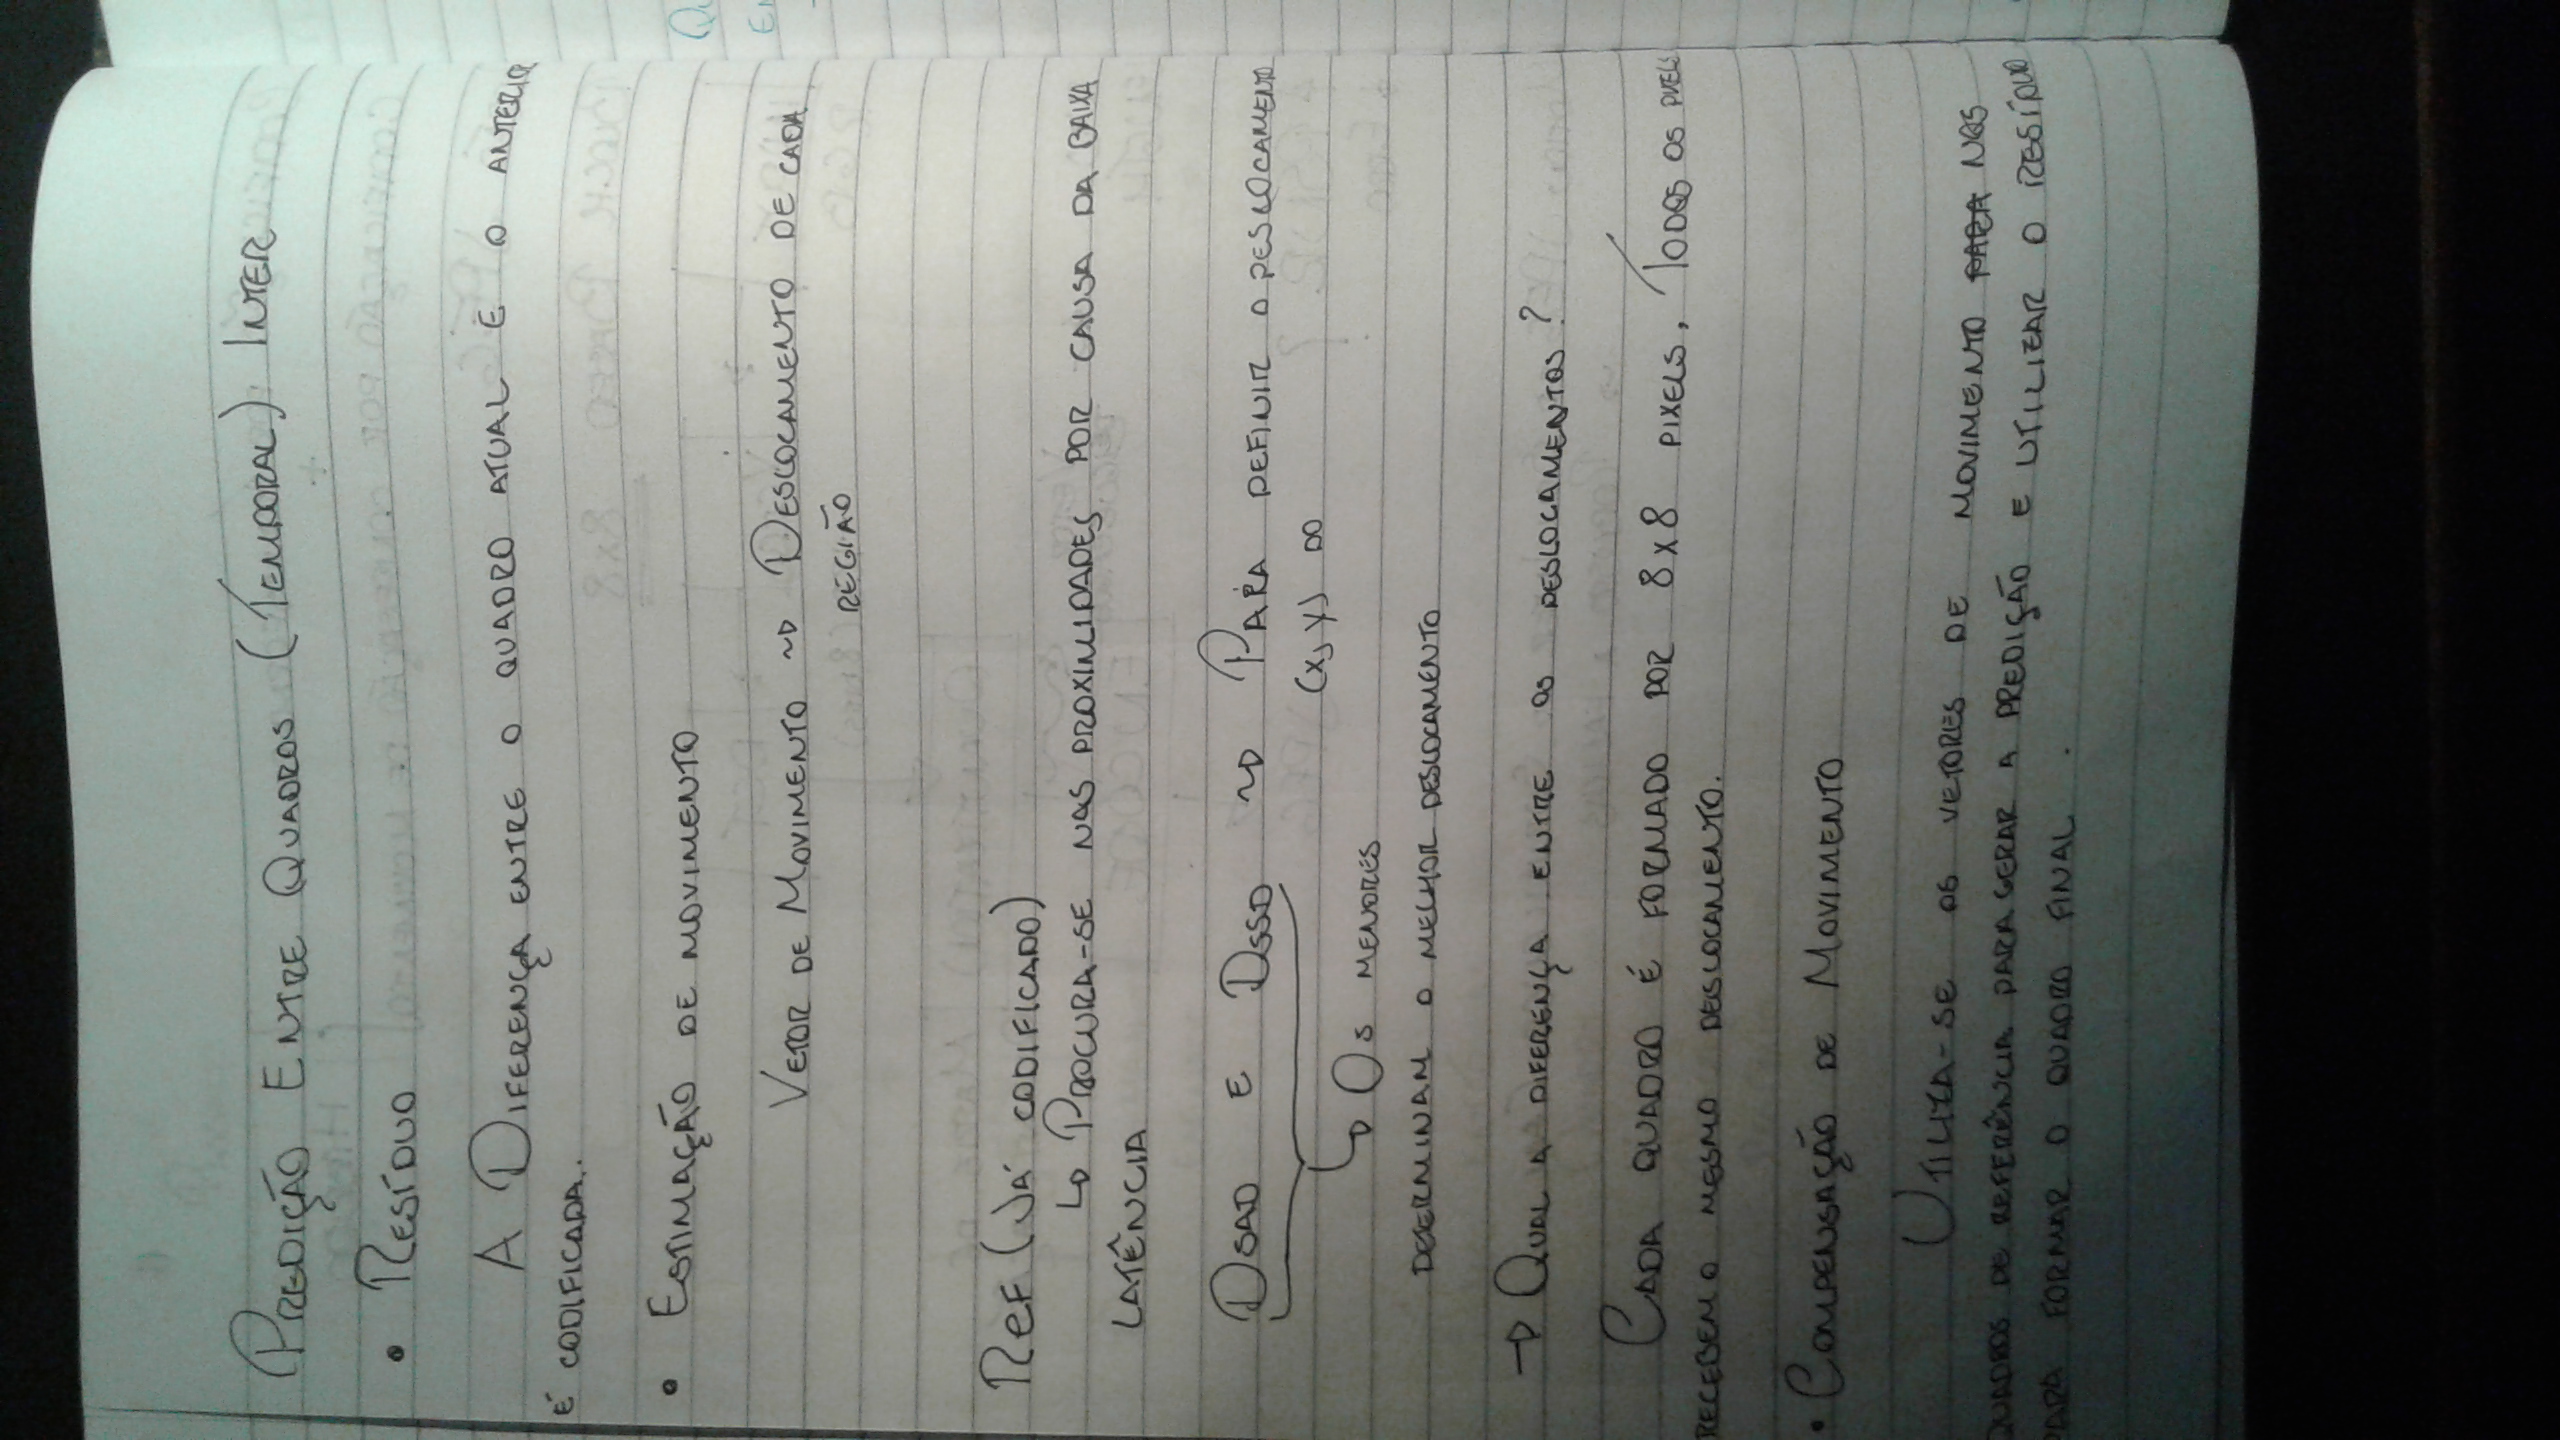 Predição Entre Quadros (Temporal) Inter
• Resíduo
A Diferença entre o quadro atual e o anterior
é codificada.
• Estimação de movimento
Vetor de Movimento ~> Deslocamento de cada
região
Ref (Já codificado)
↳ Procura-se nas proximidades por causa da baixa
latência
DSAD e DSSD ~> Para definir o deslocamento
(x, y) do
↳ Os menores
determinam o melhor deslocamento
→ Qual a diferença entre os deslocamentos?
Cada quadro é formado por 8x8 pixels. Todos os pixels
recebem o mesmo deslocamento.
• Compensação de Movimento
Utiliza-se os vetores de movimento para nos
quadros de referência para gerar a predição e utilizar o resíduo
para formar o quadro final.